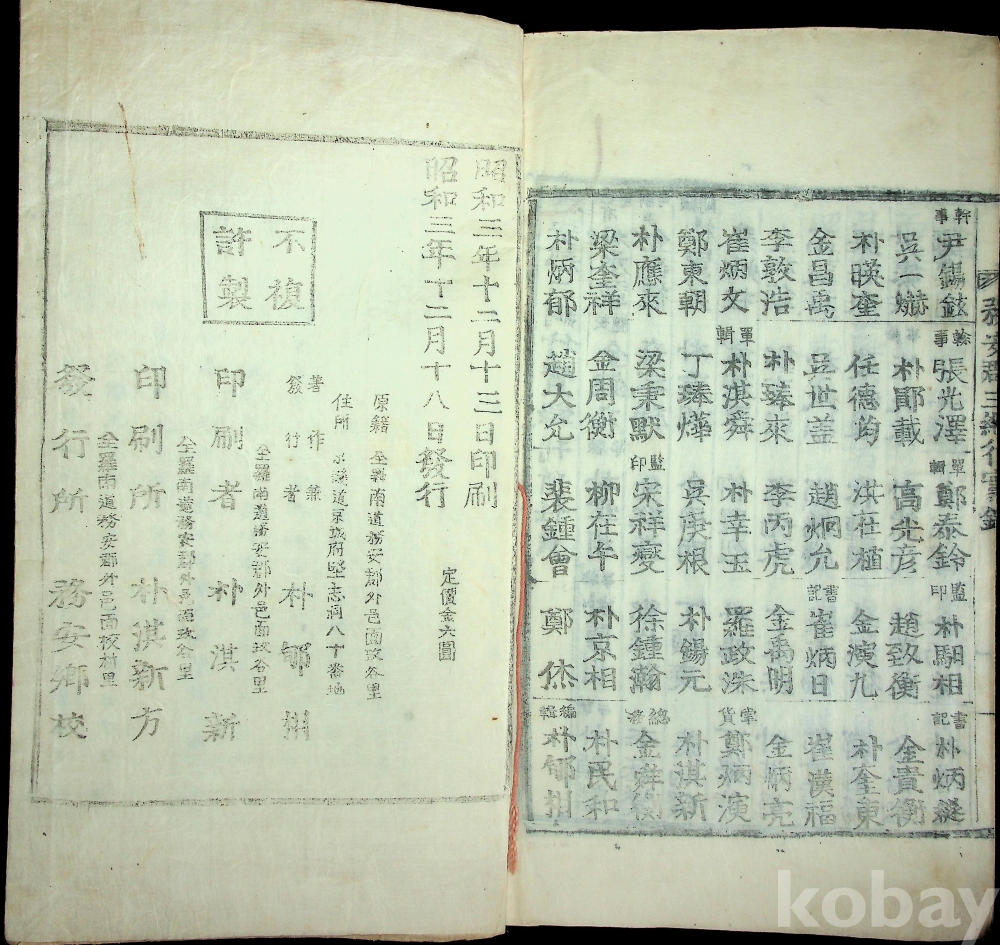 務安郡三綱行實錄
幹事 尹錫鉉 幹事 張光澤 單輯 鄭泰鈴 監印 朴馹相 書記 朴炳縱
吳一爀 朴鄖載 高光彦 趙致衡 金貴衡
朴暎奎 任德均 洪在植 金演九 朴奎東
金昌禹 吳世盖 趙炯允 書記 崔炳日 崔漢福
李敦浩 朴臻來 李丙虎 金禹明 金炳亮
崔炳文 單輯 朴淇舜 朴幸玉 羅政洙 掌貨 鄭炳演
鄭東朝 丁臻燁 吳庚根 朴錫元 朴淇新
朴應來 梁秉默 監印 宋祥燮 徐鍾翰 總務 金衡
梁奎祥 金周衡 柳在午 朴京相 朴民和
朴炳郁 趙大允 裴鍾會 鄭烋 編輯 朴州
昭和三年十二月十三日印刷
昭和三年十二月十八日發行
定價金六圓
不復
許製
原籍 全羅南道務安郡外邑面政谷里
住所 京城府堅志洞八十番地
著作兼
發行者 朴州
全羅南道務安郡外邑面政谷里
印刷者 朴淇新
全羅南道務安郡外邑面政谷里
印刷所 朴淇新方
全羅南道務安郡外邑面校村里
發行所 務安鄉校
kobay